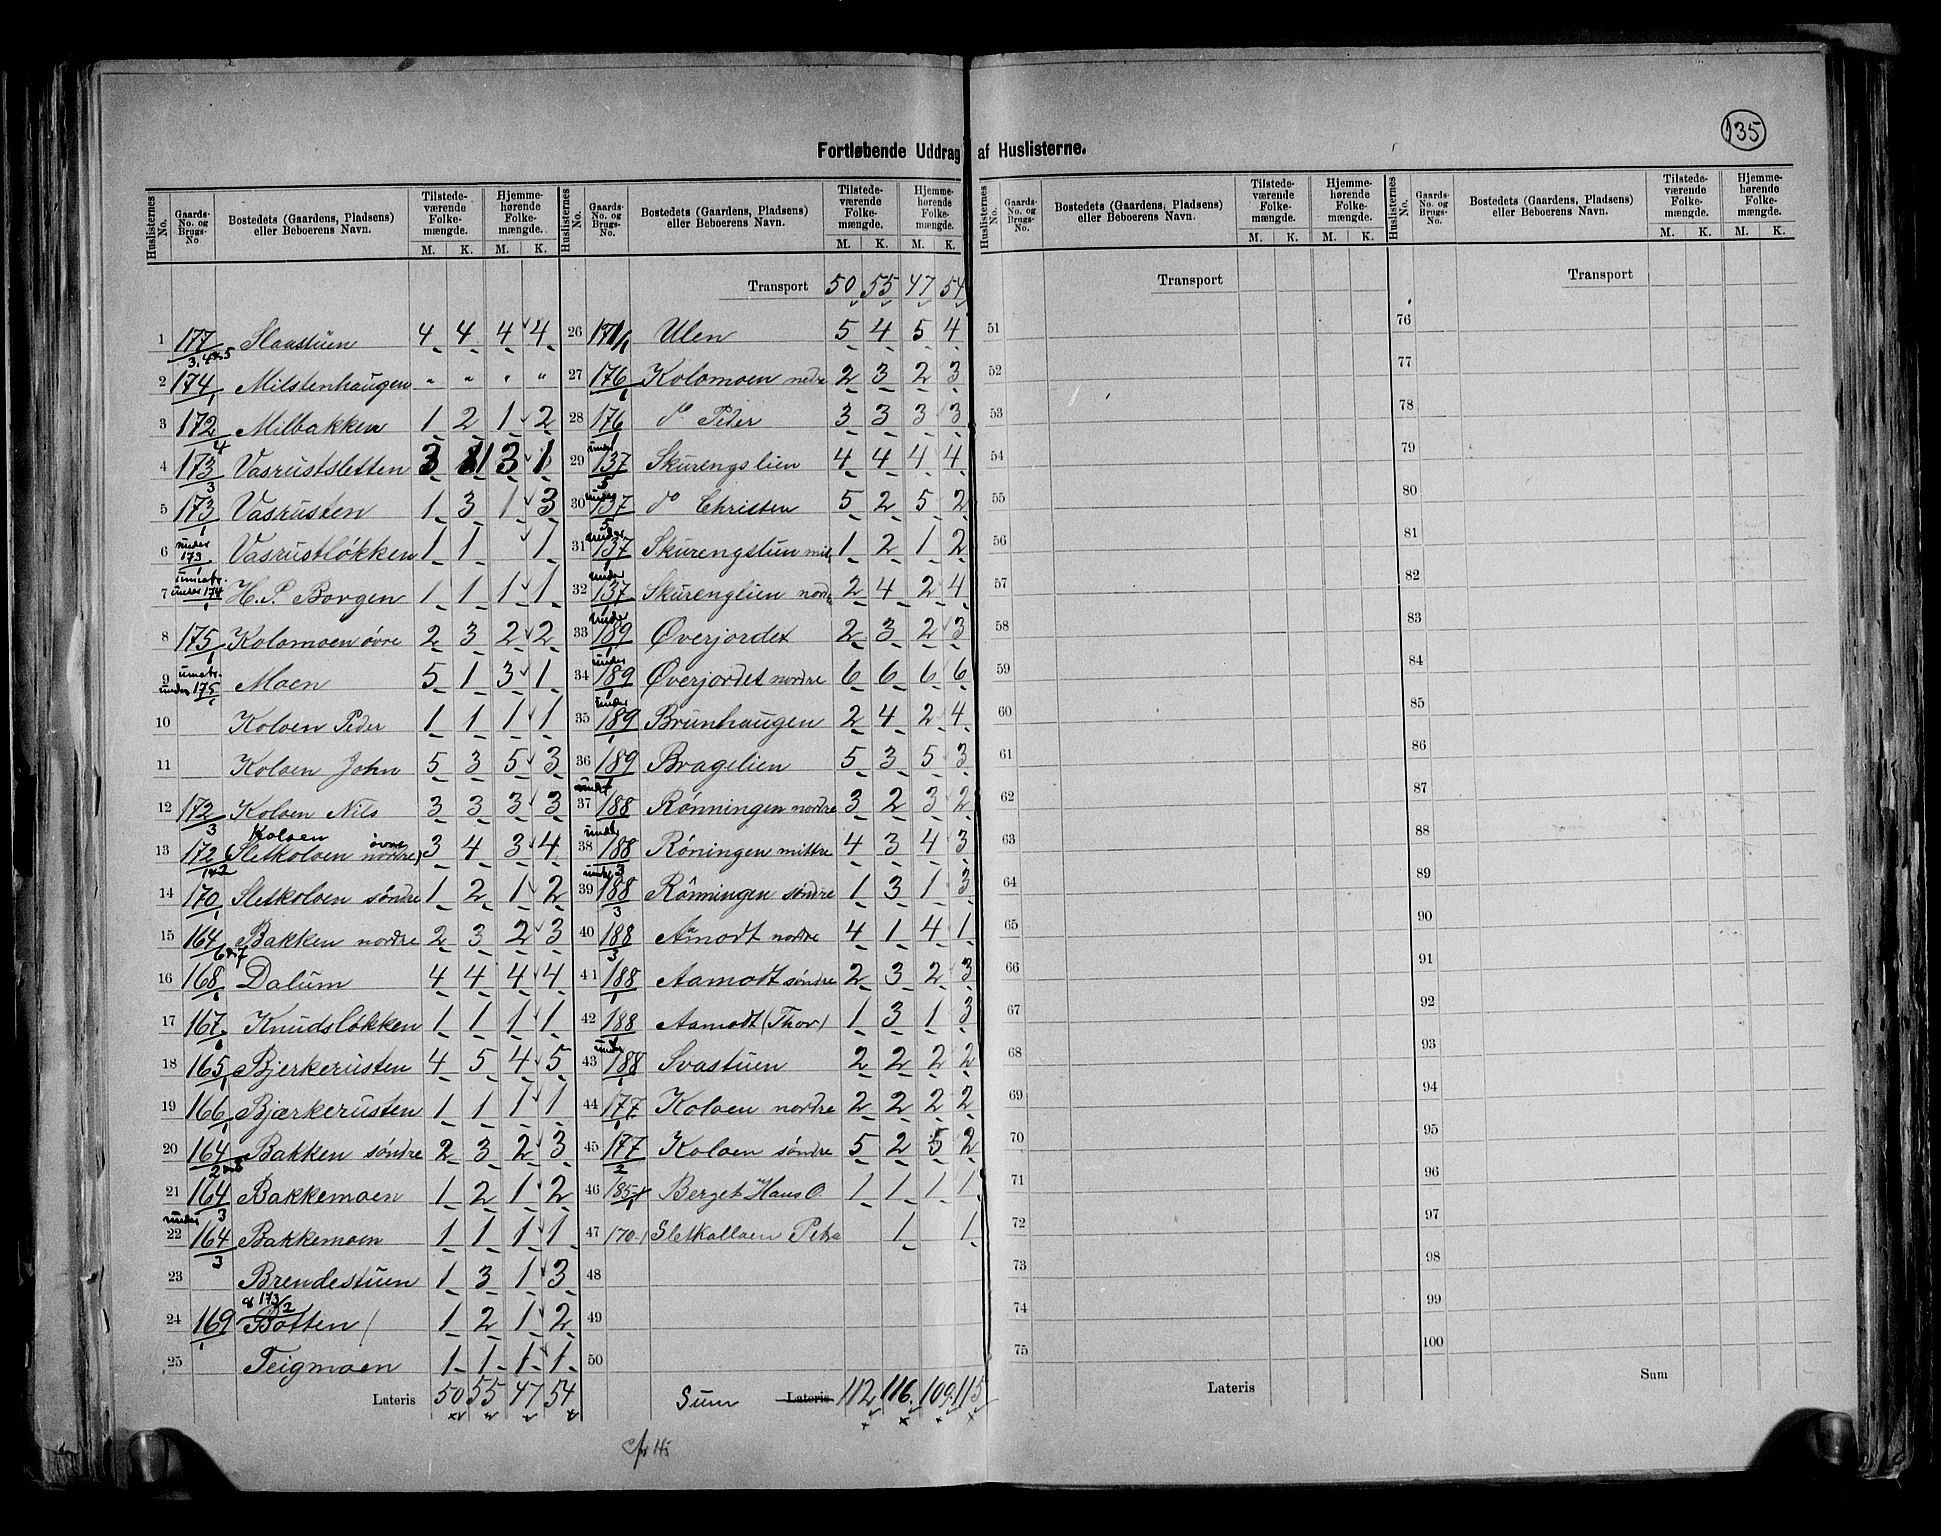 135
Fortløbende Uddrag af Huslisterne.
Huslisternes No. Gaards-No. og Brugs-No Bostedets (Gaardens, Pladsens) eller Beboerens Navn. Tilstedeværende Folkemængde. M. K. Hjemmehørende Folkemængde. M. K.
1 177 3, 4 & 5 Haastuen 4 4 4 4
2 174/1 Milstenhaugen " " " "
3 172/4 Milbakken 1 2 1 2
4 173/3 Vasrustsletten 3 1 3 1
5 173/1 Vasrusten 1 3 1 3
6 under 173/1 Vasrustløkken 1 1 1
7 umatr. under 174/1 H. P. Borgen 1 1 1 1
8 175/1 Kolomoen øvre 2 3 2 2
9 umatr. under 175/1 Moen 5 1 3 1
10 Koloen Peder 1 1 1 1
11 Koloen John 5 3 5 3
12 172/3 Koloen Nils 3 3 3 3
13 172 1 & 2 Koloen øvre (Sletkoloen nordre) 3 4 3 4
14 170/1 Sletkoloen søndre 1 2 1 2
15 164 6 & 7 Bakken nordre 2 3 2 3
16 168/1 Dalum 4 4 4 4
17 167/1 Knudsløkken 1 1 1 1
18 165/1 Bjerkerusten 4 5 4 5
19 166/1 Bjærkerusten 1 1 1 1
20 164 2 & 8 Bakken søndre 2 3 2 3
21 164/3 Bakkemoen 1 2 1 2
22 under 164/3 Bakkemoen 1 1 1 1
23 Brendestuen 1 3 1 3
24 169/1 & 173/2 Botten 1 2 1 2
25 Teigmoen 1 1 1 1
Lateris 50 55 47 54
Huslisternes No. Gaards-No. og Brugs-No. Bostedets (Gaardens, Pladsens) eller Beboerens Navn. Tilstedeværende Folkemængde. M. K. Hjemmehørende Folkemængde. M. K.
Transport 50 55 47 54
26 171/1 Ulen 5 4 5 4
27 176/1 Kolomoen nedre 2 3 2 3
28 176 do Peter 3 3 3 3
29 under 137/5 Skurengslien 4 4 4 4
30 under 137/5 do Christen 5 2 5 2
31 under 137/1 Skurengslien mit 1 2 1 2
32 under 137/1 Skurenglien nordre 2 4 2 4
33 under 189/1 Øverjordet 2 3 2 3
34 under 189/1 Øverjordet nordre 6 6 6 6
35 under 189/1 Brunhaugen 2 4 2 4
36 189 Bragelien 5 3 5 3
37 under 188 Rönningen nordre 3 2 3 2
38 under 188/3 Röningen mittre 4 3 4 3
39 under 188/3 Rönningen søndre 1 3 1 3
40 188/3 Aamodt nordre 4 1 4 1
41 188/1 Aamodt søndre 2 3 2 3
42 188/1 Aamodt (Thor) 1 3 1 3
43 under 188/1 Svastuen 2 2 2 2
44 177/1 Koloen nordre 2 2 2 2
45 177/2 Koloen søndre 5 2 5 2
46 185/1 Berget Hans O. 1 1 1 1
47 170-1 Sletkolloen Petra 1 1
48
49
50
Sum Lateris 112 116 109 115
Huslisternes No. Gaards-No. og Brugs-No. Bostedets (Gaardens, Pladsens) eller Beboerens Navn. Tilstedeværende Folkemængde. M. K. Hjemmehørende Folkemængde. M. K.
Transport
51
52
53
54
55
56
57
58
59
60
61
62
63
64
65
66
67
68
69
70
71
72
73
74
75
Lateris
Huslisternes No. Gaards-No. og Brugs-No. Bostedets (Gaardens, Pladsens) eller Beboerens Navn. Tilstedeværende Folkemængde. M. K. Hjemmehørende Folkemængde. M. K.
Transport
76
77
78
79
80
81
82
83
84
85
86
87
88
89
90
91
92
93
94
95
96
97
98
99
100
Sum